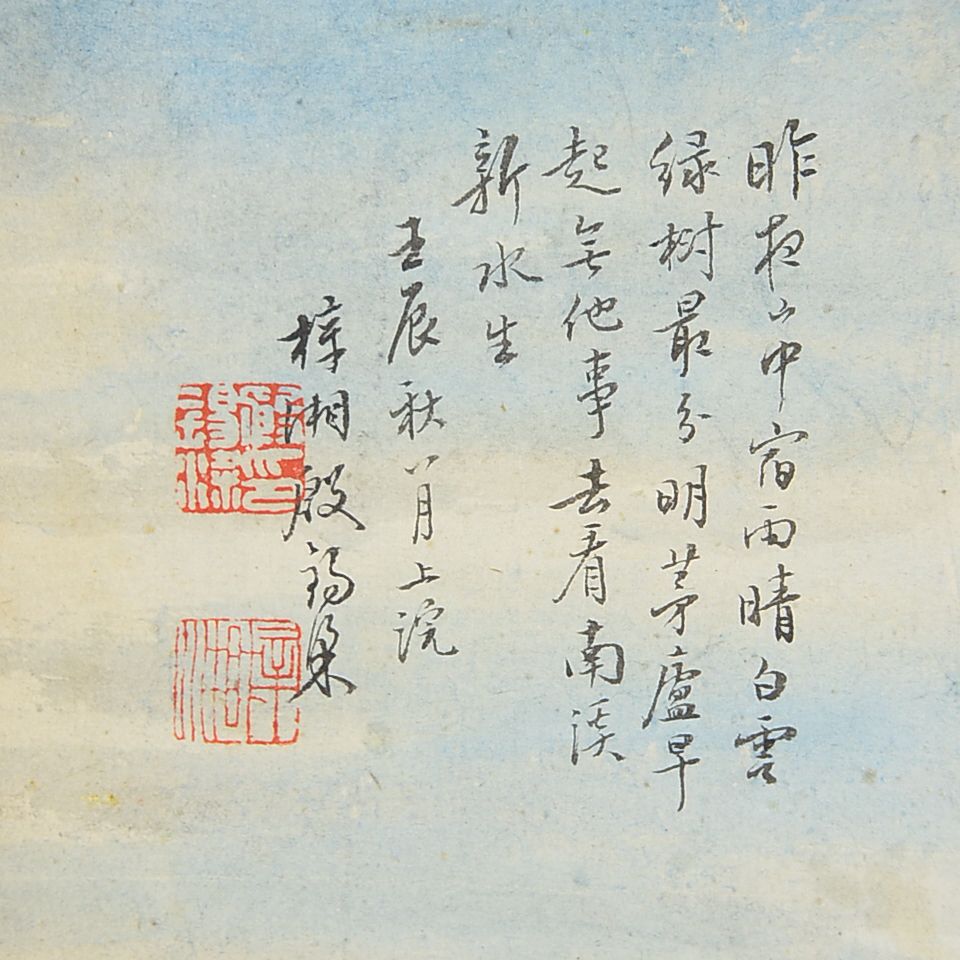 昨夜山中宿雨晴白雲
緑樹最分明茅廬早
起無他事去看南溪
新水生
壬辰秋八月上浣
梓湘殷錫梁